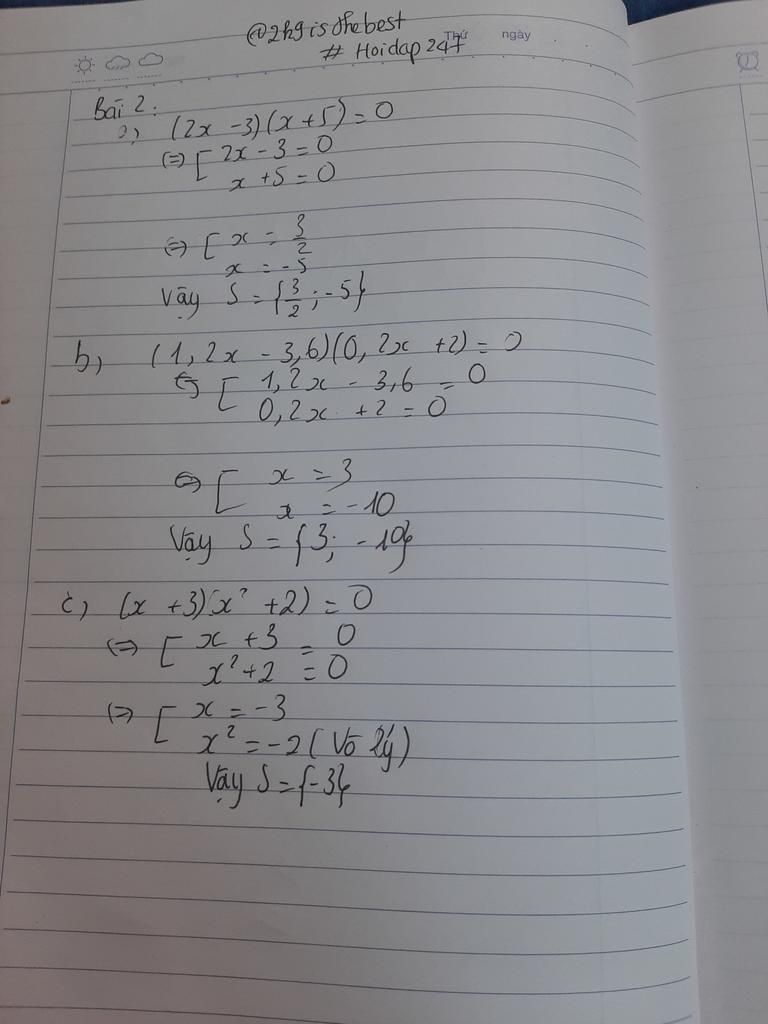 @2k9isthebest
# Hoidap 247
Thứ ngày
Bài 2:
a, (2x - 3)(x + 5) = 0
⇔ [ 2x - 3 = 0
x + 5 = 0
⇔ [ x = 3/2
x = -5
Vậy S = {3/2; -5}
b, (1,2x - 3,6)(0,2x + 2) = 0
⇔ [ 1,2x - 3,6 = 0
0,2x + 2 = 0
⇔ [ x = 3
x = -10
Vậy S = {3; -10}
c, (x + 3)(x² + 2) = 0
⇔ [ x + 3 = 0
x² + 2 = 0
⇔ [ x = -3
x² = -2 (Vô lý)
Vậy S = {-3}